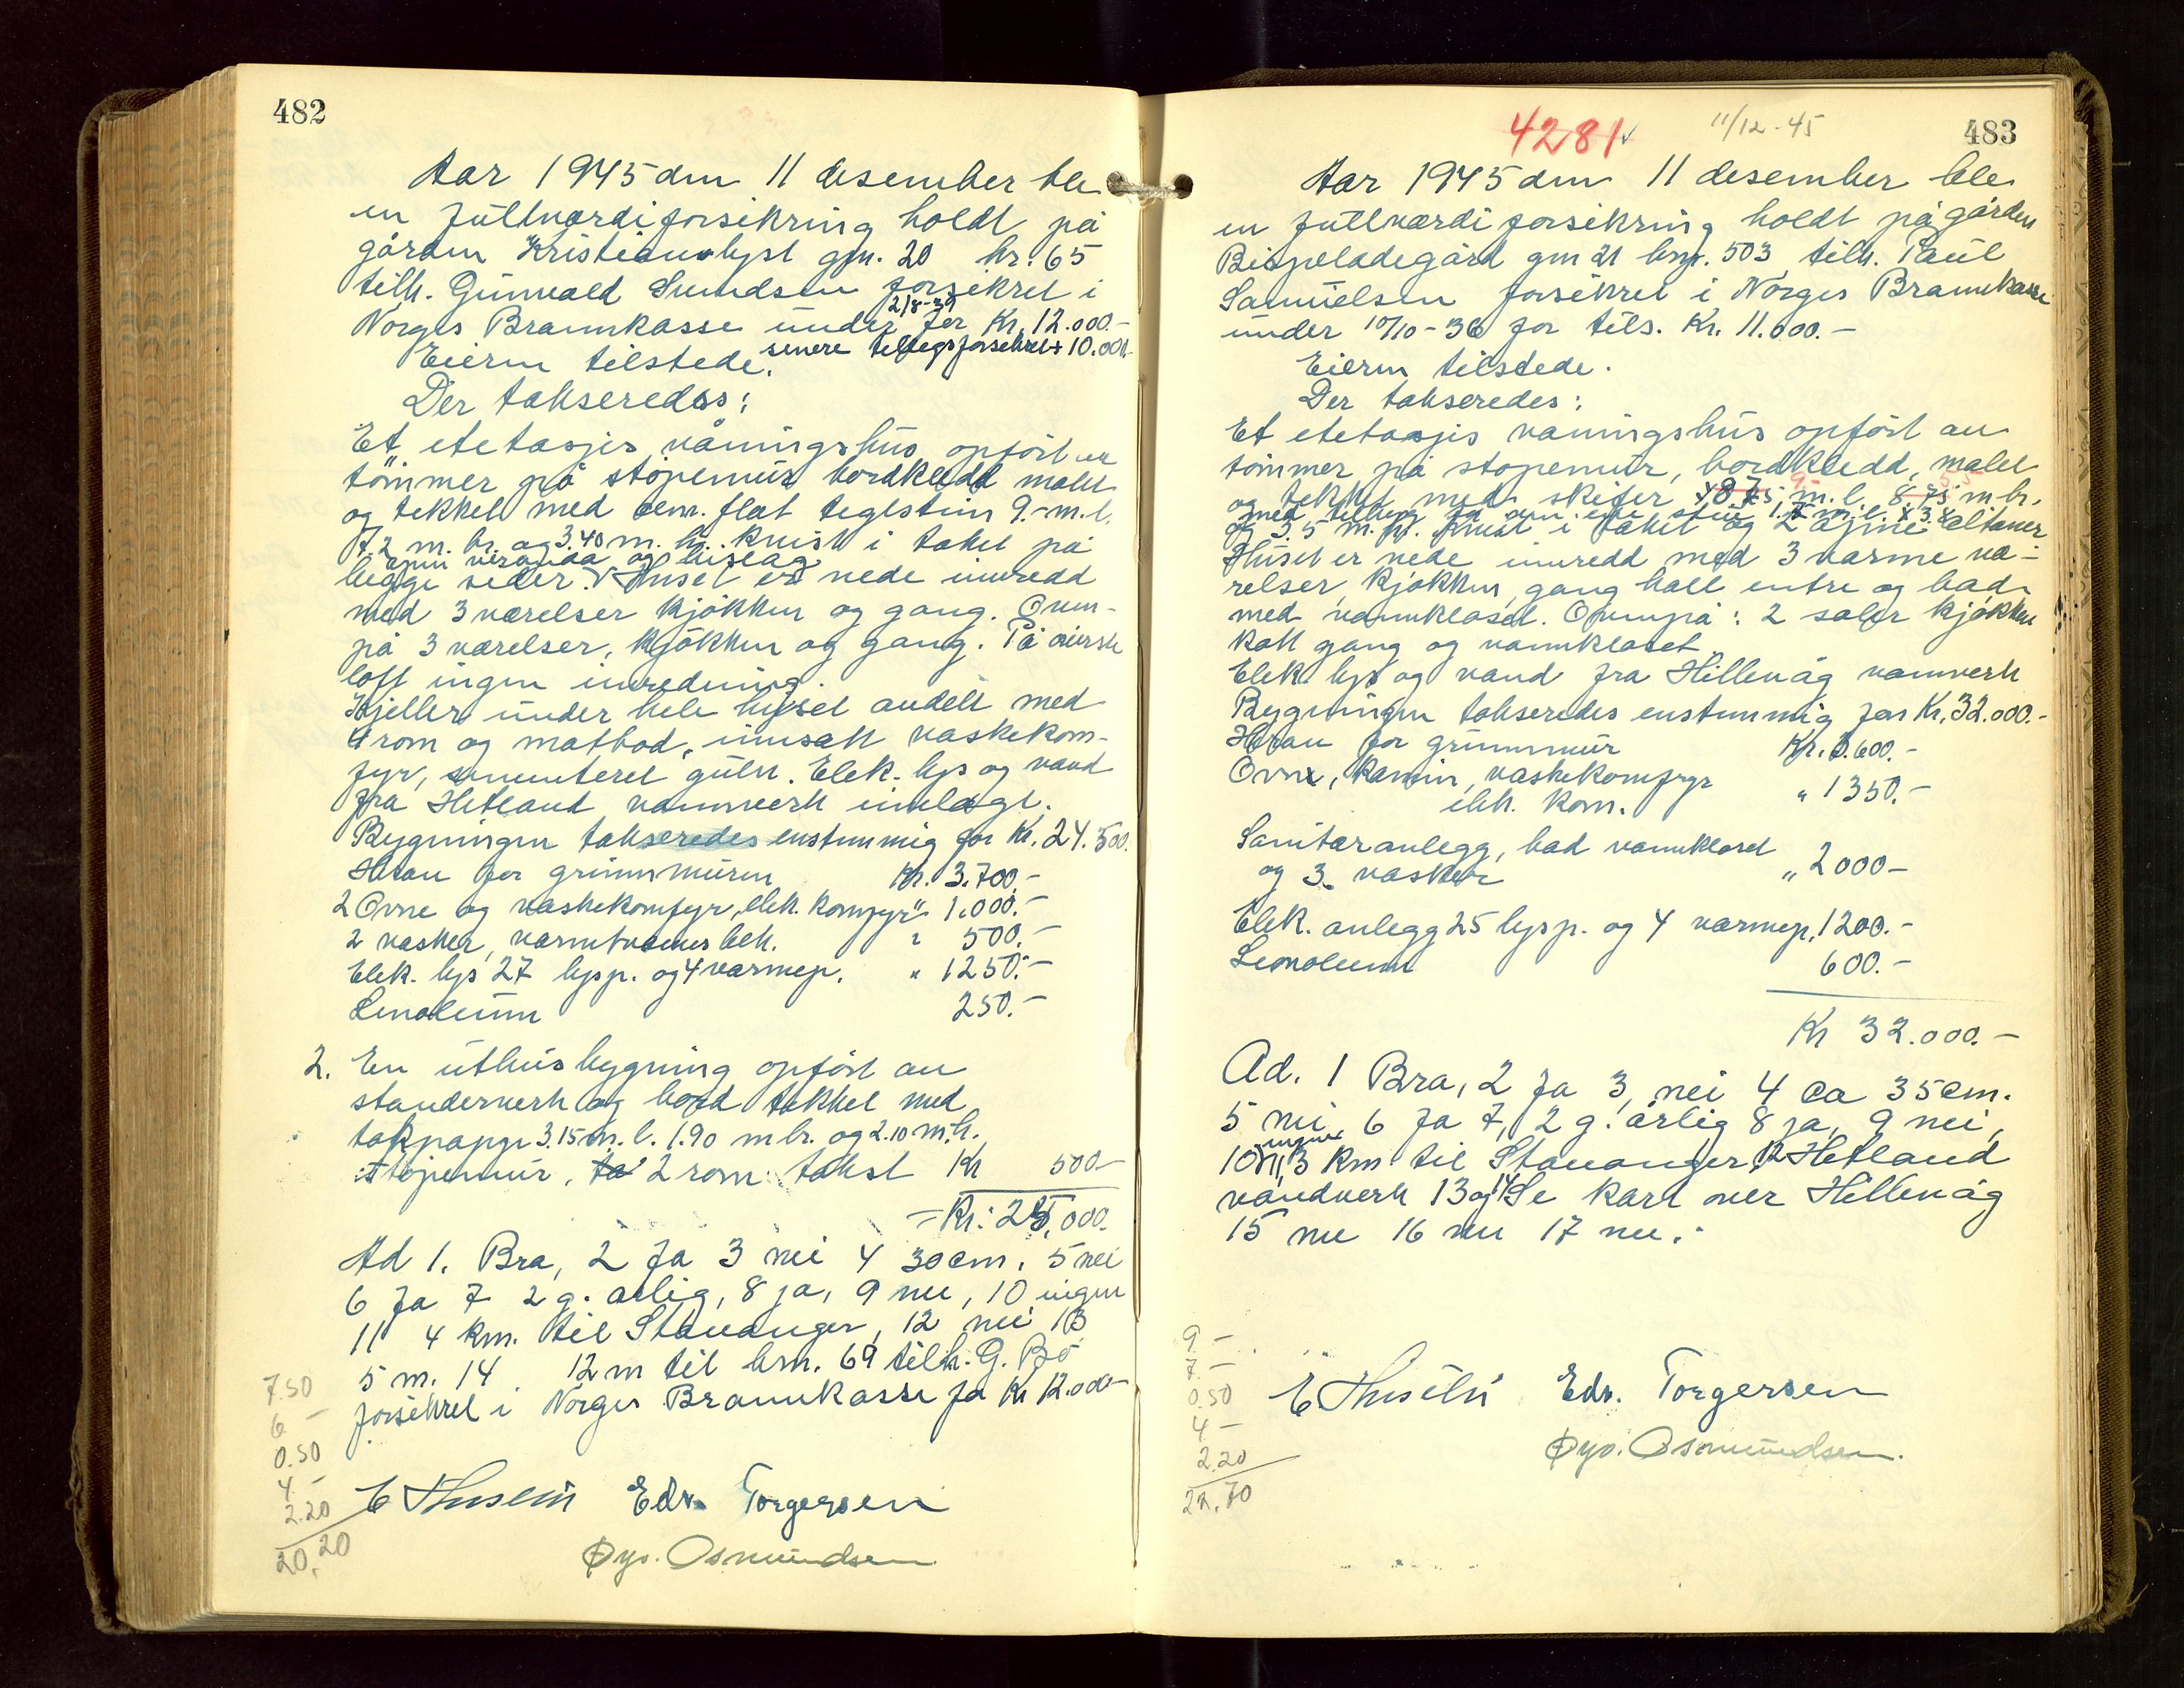 482
Aar 1945 den 11 desember ble
en fullværdiforsikring holdt på
gården Kristianslyst gnr. 20 br. 65
tilh. Gunvald Svendsen forsikret i
Norges Brannkasse under 2/8-39 for Kr. 12.000.-
senere tilleggsforsikret 10.000.-
Eieren tilstede.
Der takseredes:
Et etetasjes våningshus opført av
tømmer på støpemur bordkledd malt
og tekket med cem. flat teglsten 9.- m.l.
7.2 m. br. og 3.40 m. h. kvist i taket på
begge sider. åpen veranda og bislag Huset er nede innredd
med 3 værelser kjøkken og gang. Oven-
på 3 værelser, kjøkken og gang. På øverste
loft ingen inredning.
Kjeller under hele huset avdelt med
4 rom og matbod, innsatt vaskekom-
fyr, sementeret gulv. Elek. lys og vand
fra Hetland vannverk innlagt.
Bygningen takseredes enstemmig for Kr. 24.500.
Herav for grunnmuren Kr. 3.700.-
2 Ovne og vaskekomfyr, elek. komfyr " 1.000.-
2 vasker, varmtvannsbeh. " 500.-
Elek. lys 27 lysp. og 4 varmep. " 1250.-
Linoleum 250.-
2. En uthusbygning opført av
standerverk og bord tekket med
takpapp 3.15 m. l. 1.90 m br. og 2.10 m.h.
støpemur, 2 rom takst Kr 500-
= Kr. 25.000.
Ad 1. Bra, 2 Ja 3 nei 4 30 cm. 5 nei
6 Ja 7 2 g. årlig, 8 ja, 9 nei, 10 ingen
11 4 km. til Stavanger, 12 nei 13
5 m. 14 12 m til brn. 69 tilh. G. Bø
forsikret i Norges Brannkasse for Kr 12.000-
7.50
6 -
0.50
4.-
2.20
20.20
E Husebø Edv. Torgersen
Øyv. Osmundsen
4281
11/12-45
483
Aar 1945 den 11 desember ble
en fullværdiforsikring holdt på gården
Bispeladegård gnr 21 brn. 503 tilh. Paul
Samuelsen forsikret i Norges Brannkasse
under 10/10-36 for tils. Kr. 11.000.-
Eieren tilstede.
Der takseredes:
Et etetasjes vaningshus opført av
tømmer på støpemur, bordkledd, malet
og tekket med skifer 8.75 m.l. 8.75 m br.
og 3.5 m. h. kvist i taket og 2 åpne altaner
Huset er nede innredd med 3 varme væ-
relser, kjøkken, gang hall entre og bad
med vannklosett. Ovenpå: 2 saler kjøkken
kott gang og vannkloset
Elek. lys og vand fra Hillevåg vannverk
Bygningen takseredes enstemmig for Kr. 32.000.-
Herav for grunnmur Kr. 3.600.-
Ovne, kamin, vaskekomfyr
elek. kom. " 1350.-
Sanitæranlegg, bad vannkloset
og 3 vasker " 2000-
Elek. anlegg 25 lysp. og 4 varmep. 1200.-
Linoleum 600.-
Kr 32.000.-
Ad. 1 Bra, 2 Ja 3, nei 4 ca 35 cm.
5 nei, 6 Ja 7, 2 g. årlig 8 ja, 9 nei,
10 ingen 11, 3 km til Stavanger, 12 Hetland
vandverk 13 og 14 Se kart over Hillevåg
15 nei 16 nei 17 nei.
9 -
7.-
0.50
4 -
2.20
22.70
E Husebø Edv. Torgersen
Øyv. Osmundsen.